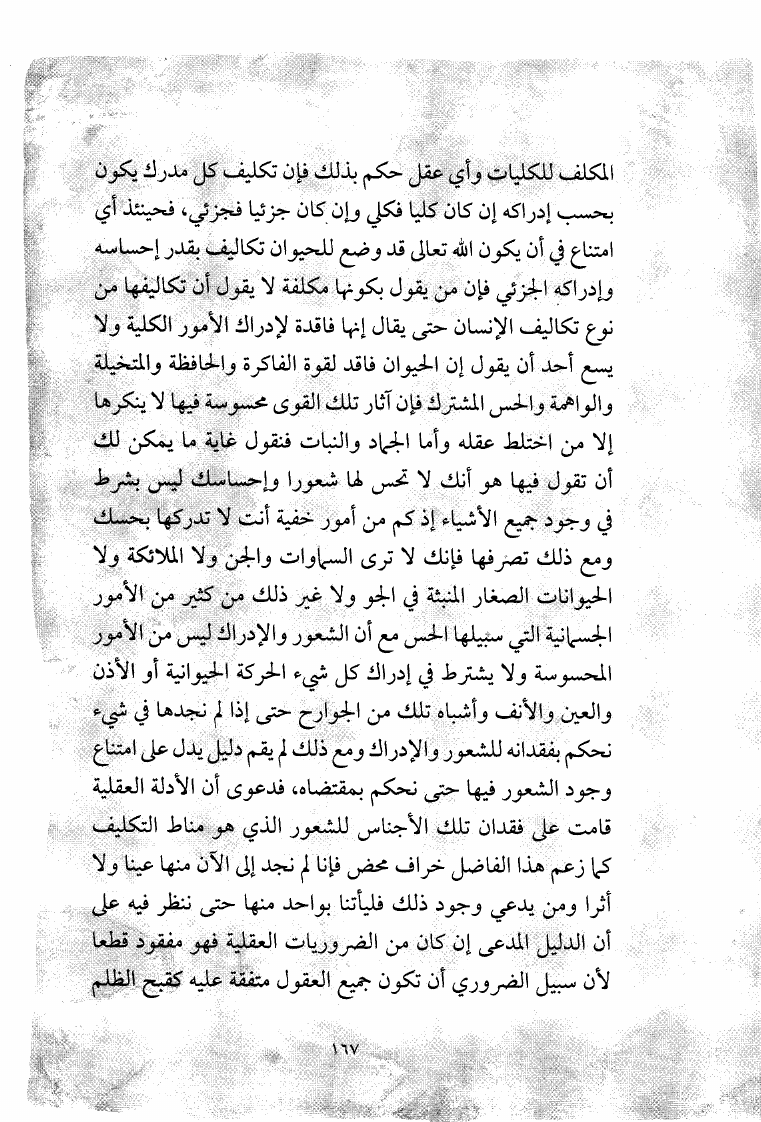 المكلف للكليات وأي عقل حكم بذلك فإن تكليف كل مدرك يكون
بحسب إدراكه إن كان كليا فكلي وإن كان جزئيا فجزئي، فحينئذ أي
امتناع في أن يكون الله تعالى قد وضع للحيوان تكاليف بقدر إحساسه
وإدراكه الجزئي فإن من يقول بكونها مكلفة لا يقول أن تكاليفها من
نوع تكاليف الإنسان حتى يقال إنها فاقدة لإدراك الأمور الكلية ولا
يسع أحد أن يقول إن الحيوان فاقد لقوة الفاكرة والحافظة والمتخيلة
والواهمة والحس المشترك فإن آثار تلك القوى محسوسة فيها لا ينكرها
إلا من اختلط عقله وأما الجماد والنبات فنقول غاية ما يمكن لك
أن تقول فيها هو أنك لا تحس لها شعورا وإحساسك ليس بشرط
في وجود جميع الأشياء إذ كم من أمور خفية أنت لا تدركها بحسك
ومع ذلك تصرفها فإنك لا ترى السماوات والجن ولا الملائكة ولا
الحيوانات الصغار المنبثة في الجو ولا غير ذلك من كثير من الأمور
الجسمانية التي سبيلها الحس مع أن الشعور والإدراك ليس من الأمور
المحسوسة ولا يشترط في إدراك كل شيء الحركة الحيوانية أو الأذن
والعين والأنف وأشباه تلك من الجوارح حتى إذا لم نجدها في شيء
نحكم بفقدانه للشعور والإدراك ومع ذلك لم يقم دليل يدل على امتناع
وجود الشعور فيها حتى نحكم بمقتضاه، فدعوى أن الأدلة العقلية
قامت على فقدان تلك الأجناس للشعور الذي هو مناط التكليف
كما زعم هذا الفاضل خراف محض فإنا لم نجد إلى الآن منها عينا ولا
أثرا ومن يدعي وجود ذلك فليأتنا بواحد منها حتى ننظر فيه على
أن الدليل المدعى إن كان من الضروريات العقلية فهو مفقود قطعا
لأن سبيل الضروري أن تكون جميع العقول متفقة عليه كقبح الظلم
١٦٧